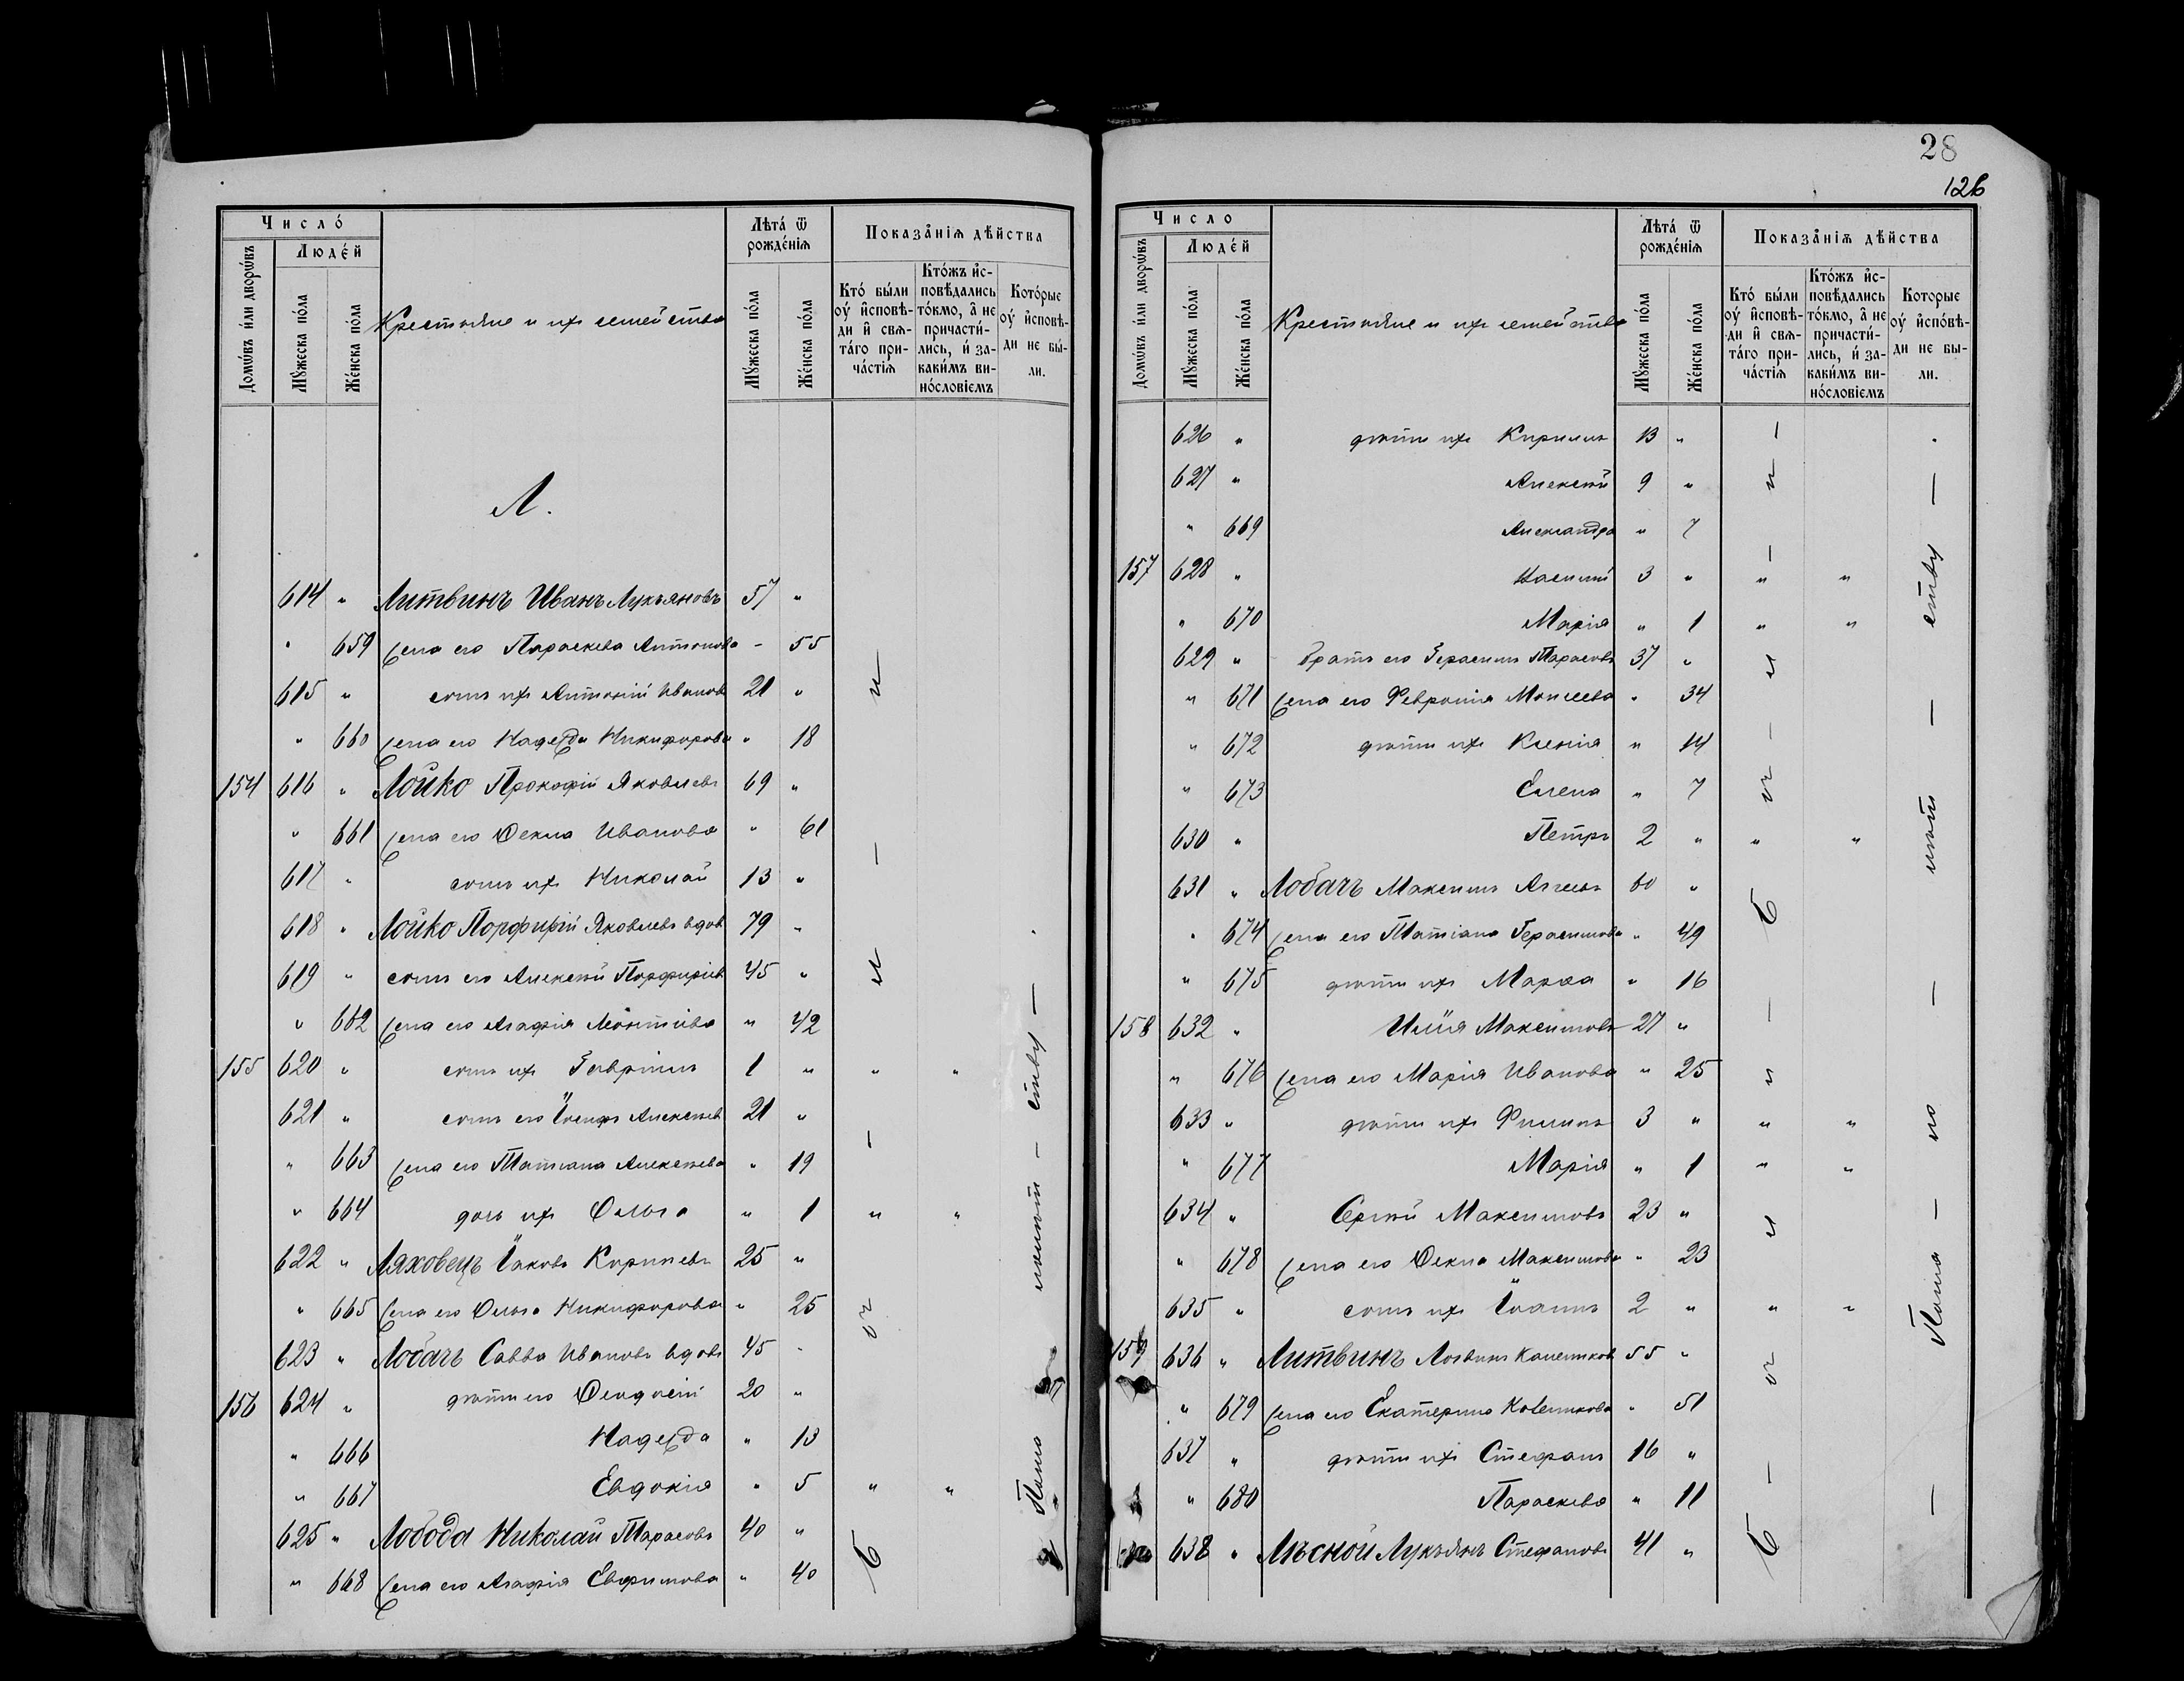 28
126
Число́
Домѡ́въ и҆́ли дворѡ́въ
Люде́й
Мꙋ́жеска по́ла
Же́нска по́ла
Крестьяне и ихъ семейства
Лѣта́ ѿ рожде́нїѧ
Мꙋ́жеска по́ла
Же́нска по́ла
Показа̑нїѧ дѣ́йства
Кто́ бы́ли оу҆ и҆сповѣ́ди и҆ свѧта́го прича́стїѧ
Кто́жъ и҆сповѣ́дались то́кмо, а҆ не причасти́лись, и҆ за каки́мъ вино́словїемъ
Кото́рые оу҆ и҆сповѣ́ди не бы́ли.
Л.
614 " Литвинъ Иванъ Лукьяновъ 57 "
" 659 жена его Параскева Антонова - 55
615 " сынъ ихъ Антоній Ивановъ 21 "
" 660 жена его Надежда Никифорова " 18
154 616 " Лойко Прокофій Яковлевъ 69 "
" 661 жена его Ѳекла Иванова " 61
617 " сынъ ихъ Николай 13 "
618 " Лойко Порфирій Яковлевъ вдов 79 "
619 " сынъ его Алексѣй Порфиріев 45 "
" 662 жена его Агафія Леонтіева " 42
155 620 " сынъ ихъ Гавріилъ 1 " " "
621 " сынъ его Іосифъ Алексѣев 21 "
" 663 жена его Татіана Алексѣева " 19
" 664 дочь ихъ Ольга " 1 " "
622 " Ляховецъ Іаковъ Корнѣевъ 25 "
" 665 жена его Ольга Никифорова " 25
623 " Лобачъ Савва Ивановъ вдовъ 45 "
156 624 " дѣти его Ѳеодосій 20 "
" 666 Надежда " 13
" 667 Евдокія " 5 " "
625 " Лобода Николай Тарасовъ 40 "
" 668 жена его Агафія Евфимова " 40
Число
Домѡ́въ и҆́ли дворѡ́въ
Люде́й
Мꙋ́жеска по́ла
Же́нска по́ла
Крестьяне и ихъ семейства
Лѣта́ ѿ рожде́нїѧ
Мꙋ́жеска по́ла
Же́нска по́ла
Показа̑нїѧ дѣ́йства
Кто́ бы́ли оу҆ и҆сповѣ́ди и҆ свѧта́го прича́стїѧ
Кто́жъ и҆сповѣ́дались то́кмо, а҆ не причасти́лись, и҆ за каки́мъ вино́словїемъ
Которые оу҆ и҆спо́вѣди не были.
626 " дѣти ихъ Кириллъ 13 "
627 " Алексѣй 9 "
" 669 Александра " 7
157 628 " Василій 3 " " "
" 670 Марія " 1 " "
629 " братъ его Герасимъ Тарасовъ 37 "
" 671 жена его Февронія Моисеева " 34
" 672 дѣти ихъ Ксенія " 14
" 673 Елена " 7
630 " Петръ 2 " " "
631 " Лобачъ Максимъ 60 "
" 674 жена его Татіана Герасимова " 49
" 675 дѣти ихъ Марѳа " 16
158 632 " Илія Максимовъ 27 "
" 676 жена его Марія Иванова " 25
633 " дѣти ихъ Филипъ 3 " " "
" 677 Марія " 1 " "
634 " Сергѣй Максимовъ 23 "
" 678 жена его Ѳекла Максимова " 23
635 " сынъ ихъ Іоаннъ 2 " " "
159 636 " Литвинъ Логвинъ Калениковъ 55 "
" 679 жена его Екатерина 51
637 " дѣти ихъ Стефанъ 16 "
" 680 Параскева " 11
638 " Лѣсной Лукьянъ Стефановъ 41 "